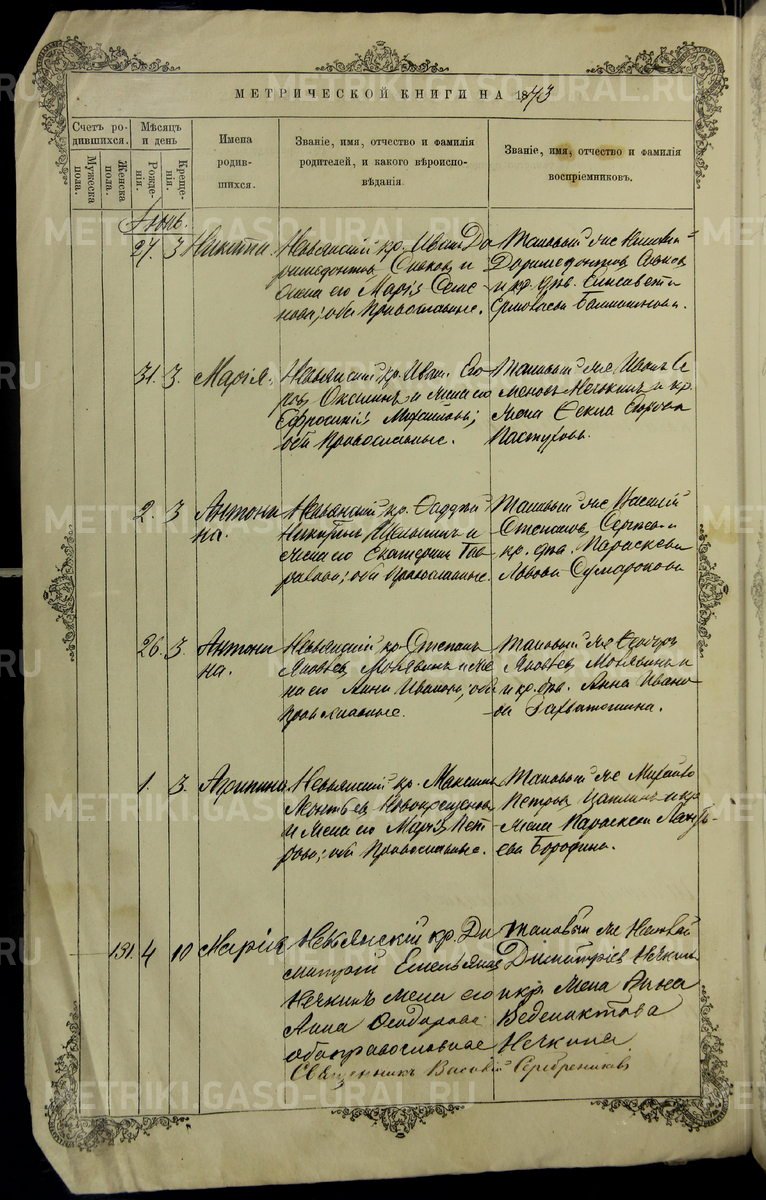 МЕТРИЧЕСКОЙ КНИГИ НА 1873
Счетъ ро-
дившихся.
Мужеска
пола.
Женска
пола.
Мѣсяцъ
и день
Рожде-
нія.
Креще-
нія.
Имена
родив-
шихся.
Званіе, имя, отчество и фамилія
родителей, и какого вѣроиспо-
вѣданія.
Званіе, имя, отчество и фамилія
воспріемниковъ.
Іюнь.
27. 3 Никита Невьянскій кр. Иванъ До
римедонтовъ и
жена его Марія Семе
нова; оба Православные.
Таковый же
Доримедонтовъ
и кр. дѣв. Елисавета
31. 3. Марія. Невьянскій кр. Иванъ Его
ровъ и жена его
Ефросинія Михайлова;
оба Православные.
Таковый же Иванъ Се
меновъ Нечкинъ и кр.
жена Ѳекла
Пастухова.
2. 3 Антони
на.
Невьянскій кр.
Никитинъ и
жена его Екатерина Гав
рилова; оба Православные.
Таковый же Василій
Степановъ
кр. дѣв. Параскева
Львова Сумарокова
26. 3. Антони
на.
Невьянскій кр. Степанъ
Яковлевъ Молявинъ и же
на его Анна Иванова; оба
православные.
Таковый же Ѳедоръ
Яковлевъ Молявинъ и
и кр. дѣв. Анна Ивано-
ва
1. 3. Агрипина Невьянскій кр. Максимъ
Леонтьевъ Новокрещеновъ
и жена его Марія Пет
рова; оба Православные.
Таковый же Михаило
Петровъ Цаплинъ и кр.
жена Параскева Лаврть-
ева Бородина.
131. 4 10 Марія Невьянскій кр. Ди
митрій Емельяновъ
Нечкинъ жена его
Анна Ѳеодорова
оба православные
таковый же Матвѣй
Димитріевъ Нечкинъ
и кр. жена Анна
Ведениктова
Нечкина
Священникъ Василій Серебрениковъ
METRIKI.GASO-URAL.RU